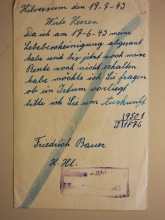 Hilversum den 19-8-43
Werte Herren
Da ich am 17-6-43 meine
Lebensbescheinigung abgesant
habe und bis jetzt noch meine
Rente noch nicht erhalten
habe möchte ich Sie fragen
ob ein Irtum vorliegt
bitte ich Sie um Auskunft
Friedrich Bauer